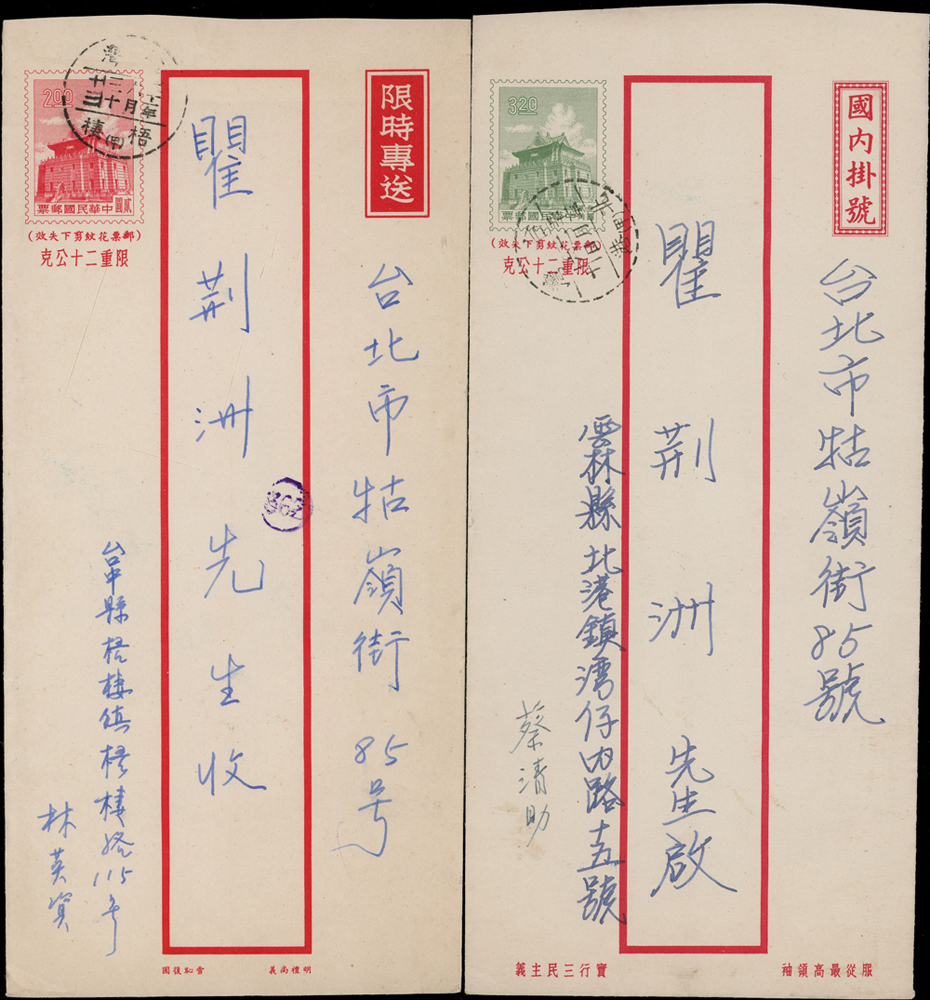 限時專送
台北市牯嶺街85号
瞿荆洲先生收
362
2.00
票郵國民華中
貳圓
(郵票花紋剪下失效)
限重二十公克
梧棲
台中縣梧棲鎮梧棲路115号
林英
明禮尚義
雪恥復國
國內掛號
台北市牯嶺街85號
瞿荆洲先生啟
3.20
票郵國民華中
(郵票花紋剪下失效)
限重二十公克
雲林縣北港鎮灣仔內路十五號
蔡清助
服從最高領袖
實行三民主義